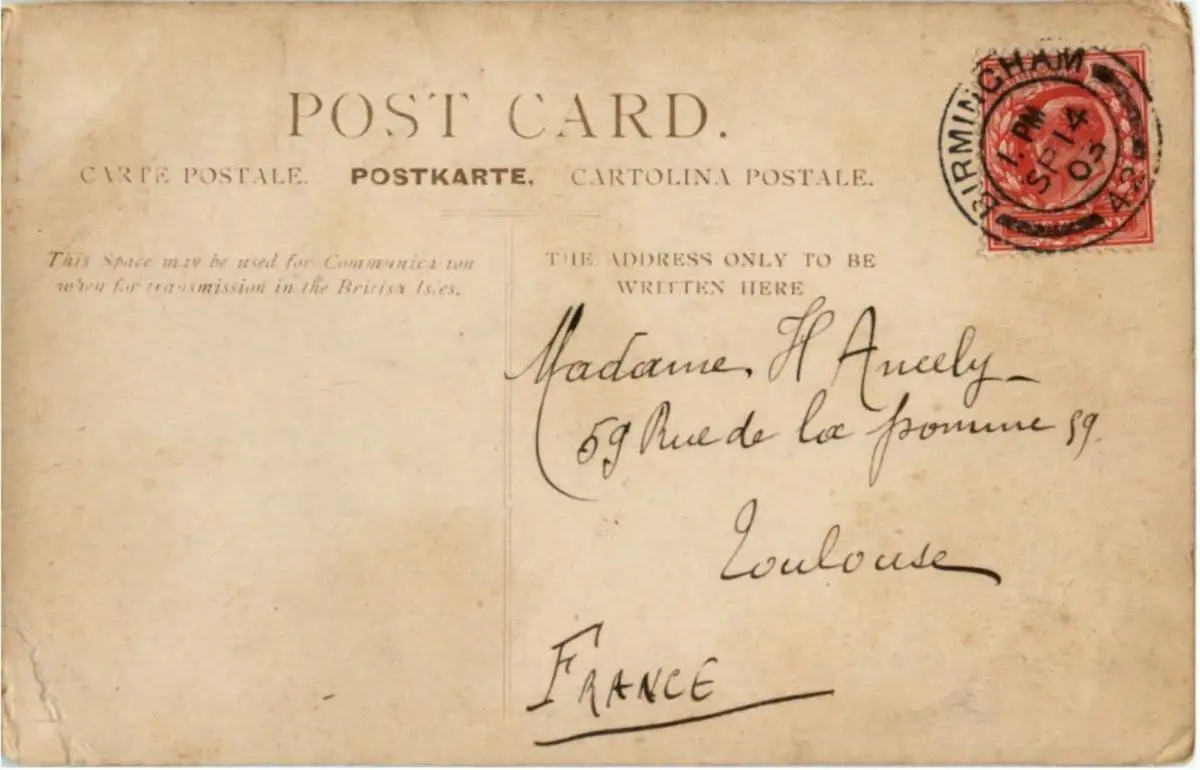 POST CARD.
CARTE POSTALE. POSTKARTE. CARTOLINA POSTALE.
This Space may be used for Communication
when for transmission in the British Isles.
THE ADDRESS ONLY TO BE
WRITTEN HERE
BIRMINGHAM
1. PM
SP 14
03
42
Madame H Ancely
59 Rue de la pomme 59
Toulouse
FRANCE